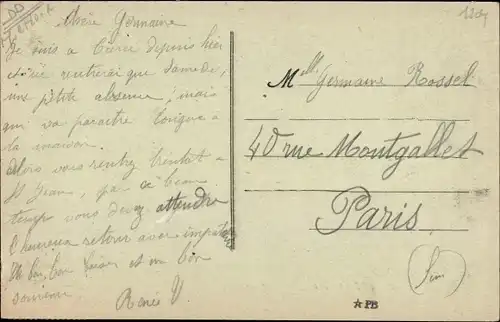 Chère Germaine
Je suis a depuis hier
rentrerai que Samedi,
une petite absence, mais
qui va paraitre longue a
la maison.
Alors vous rentrez bientot a
St Jean, par ce beau
temps vous devez attendre
l'heureux retour avec
bon baiser et un bon
souvenir
Renée V
Melle Germaine Rossel
40 rue Montgallet
Paris
PB